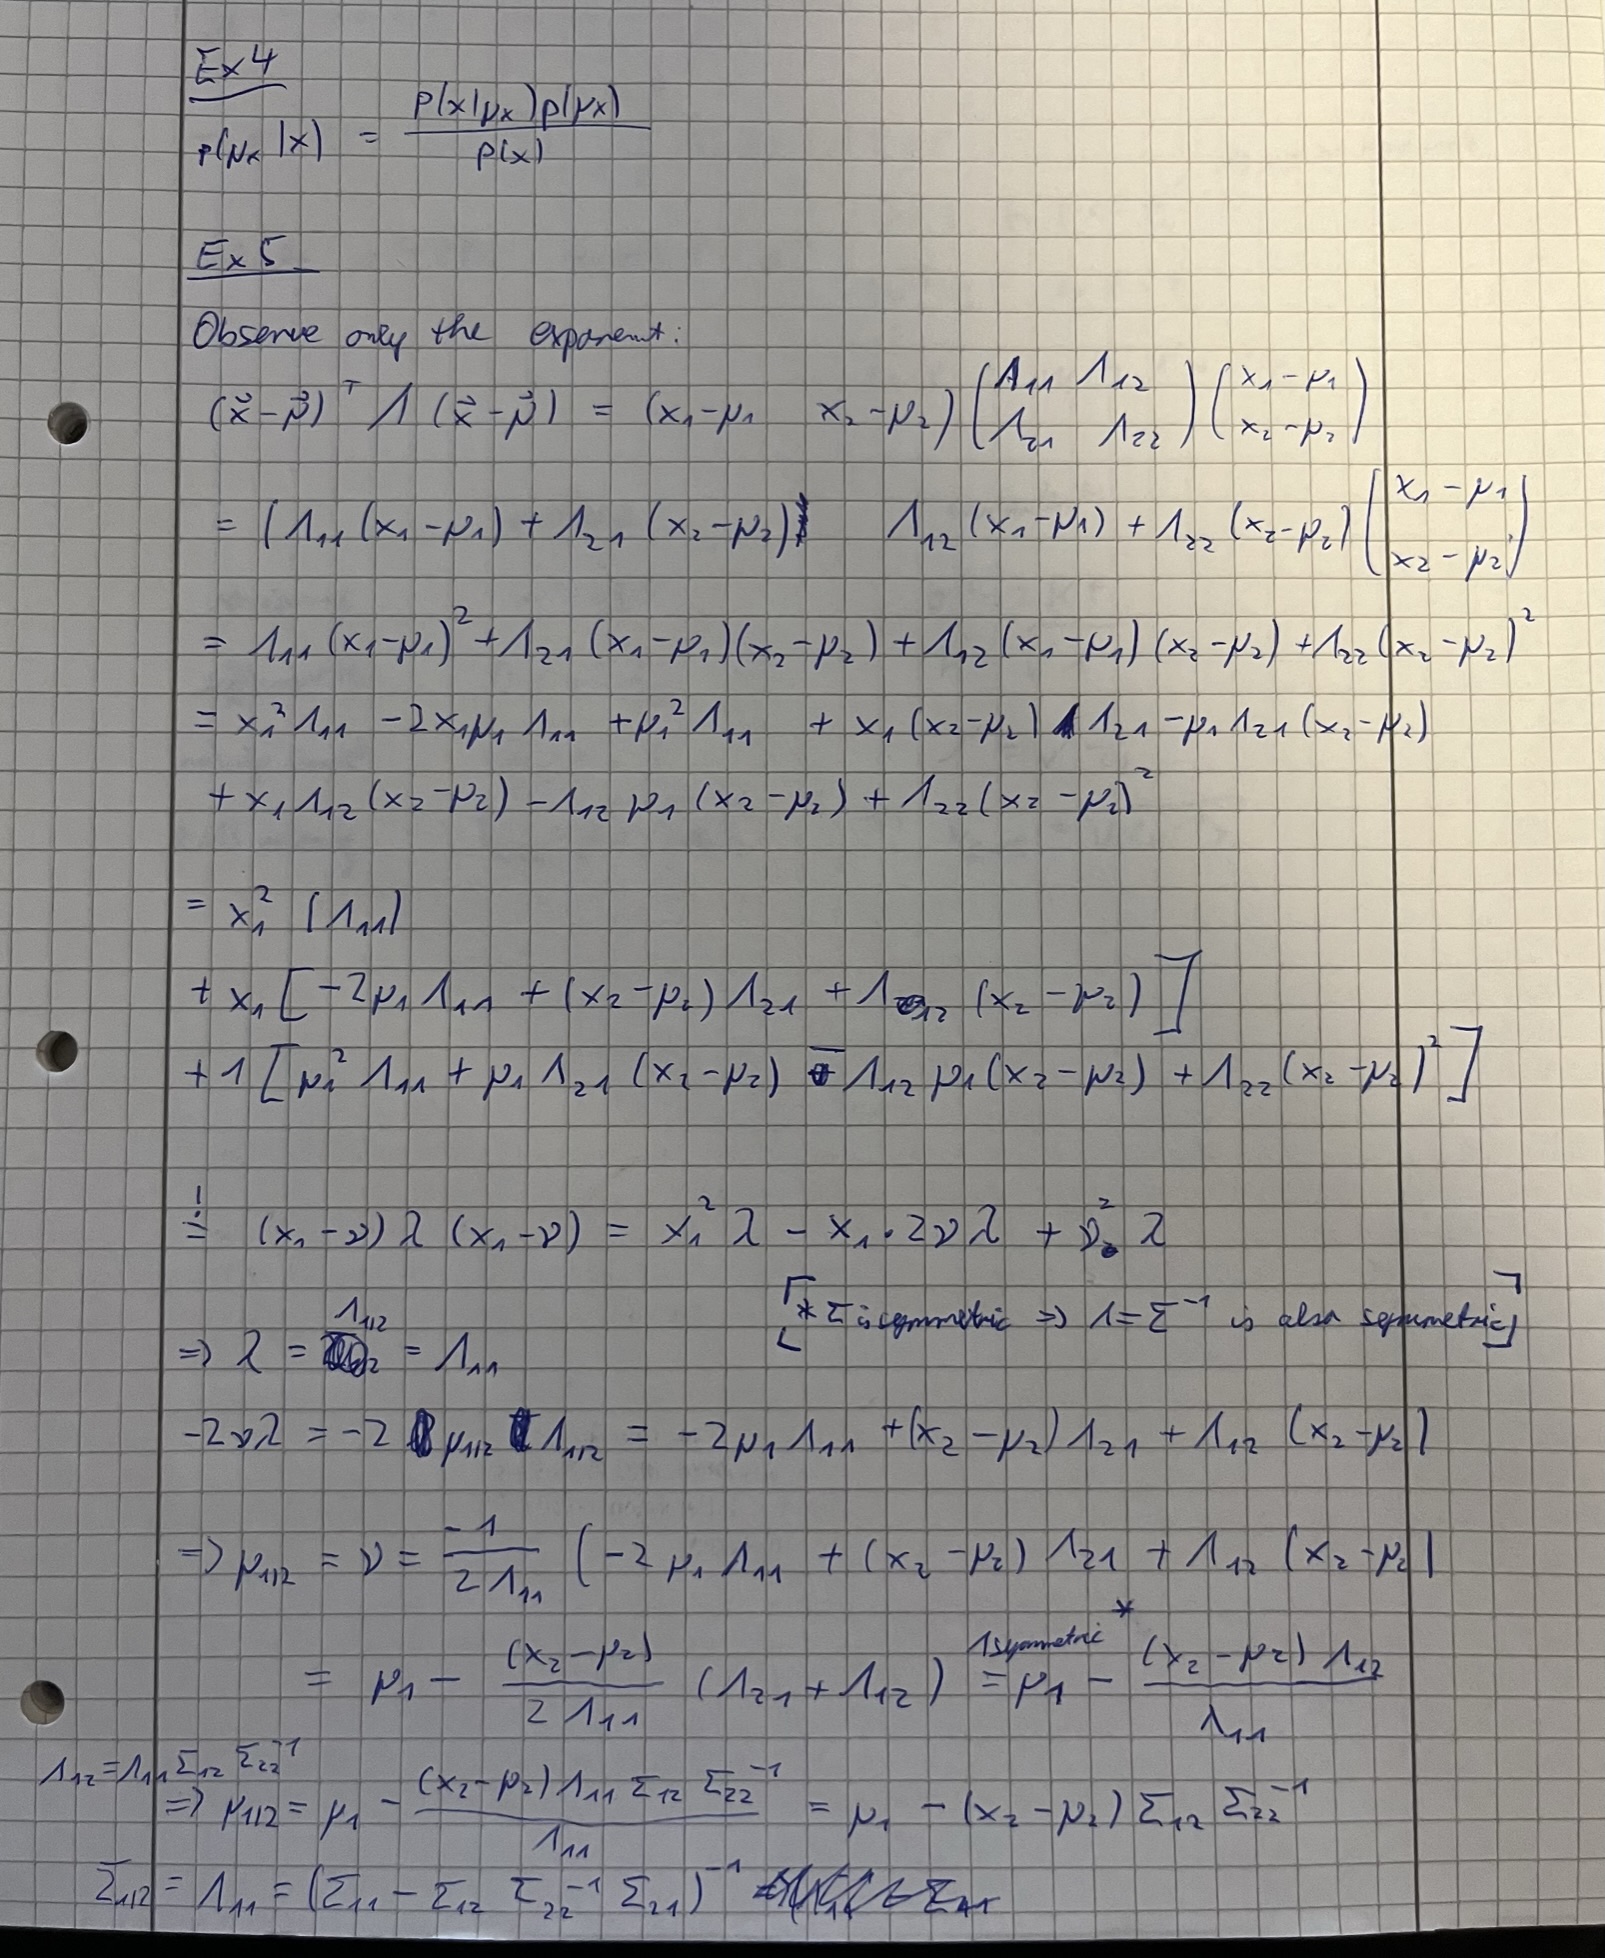 Ex 4
p(μₓ|x) = p(x|μₓ)p(μₓ) / p(x)
Ex 5
Observe only the exponent:
(x⃗-μ⃗)ᵀ Λ (x⃗-μ⃗) = (x₁-μ₁ x₂-μ₂) (Λ₁₁ Λ₁₂ Λ₂₁ Λ₂₂) (x₁-μ₁ x₂-μ₂)
= (Λ₁₁(x₁-μ₁) + Λ₂₁(x₂-μ₂) Λ₁₂(x₁-μ₁) + Λ₂₂(x₂-μ₂) (x₁-μ₁ x₂-μ₂)
= Λ₁₁(x₁-μ₁)² + Λ₂₁(x₁-μ₁)(x₂-μ₂) + Λ₁₂(x₁-μ₁)(x₂-μ₂) + Λ₂₂(x₂-μ₂)²
= x₁²Λ₁₁ - 2x₁μ₁Λ₁₁ + μ₁²Λ₁₁ + x₁(x₂-μ₂)Λ₂₁ - μ₁Λ₂₁(x₂-μ₂)
+ x₁Λ₁₂(x₂-μ₂) - Λ₁₂μ₁(x₂-μ₂) + Λ₂₂(x₂-μ₂)²
= x₁² (Λ₁₁)
+ x₁ [-2μ₁Λ₁₁ + (x₂-μ₂)Λ₂₁ + Λ₁₂(x₂-μ₂)]
+ 1 [μ₁²Λ₁₁ + μ₁Λ₂₁(x₂-μ₂) - Λ₁₂μ₁(x₂-μ₂) + Λ₂₂(x₂-μ₂)²]
!= (x₁-ν)λ(x₁-ν) = x₁²λ - x₁·2νλ + ν²λ
[* Σ is symmetric => Λ=Σ⁻¹ is also symmetric]
=> λ = Λ₁|₂ = Λ₁₁
-2νλ = -2 μ₁|₂ Λ₁|₂ = -2μ₁Λ₁₁ + (x₂-μ₂)Λ₂₁ + Λ₁₂(x₂-μ₂)
=> μ₁|₂ = ν = -1 / 2Λ₁₁ (-2μ₁Λ₁₁ + (x₂-μ₂)Λ₂₁ + Λ₁₂(x₂-μ₂)
= μ₁ - (x₂-μ₂) / 2Λ₁₁ (Λ₂₁+Λ₁₂) Λ symmetric* = μ₁ - (x₂-μ₂)Λ₁₂ / λ₁₁
Λ₁₂=Λ₁₁Σ₁₂Σ₂₂⁻¹
=> μ₁|₂ = μ₁ - (x₂-μ₂)Λ₁₁Σ₁₂Σ₂₂⁻¹ / Λ₁₁ = μ₁ - (x₂-μ₂)Σ₁₂Σ₂₂⁻¹
Σ₁|₂ = Λ₁₁ = (Σ₁₁ - Σ₁₂Σ₂₂⁻¹Σ₂₁)⁻¹